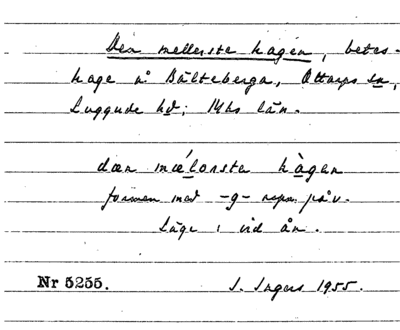 Den mellersta hagen, betes-
hage å Bälteberga, Ottarps sn,
Luggude hd; Mhs län.
dæn mǽlorsta hàgen
formen med -g- repr. påv.
Läge: vid ån.
Nr 5255. I. Ingers 1955.